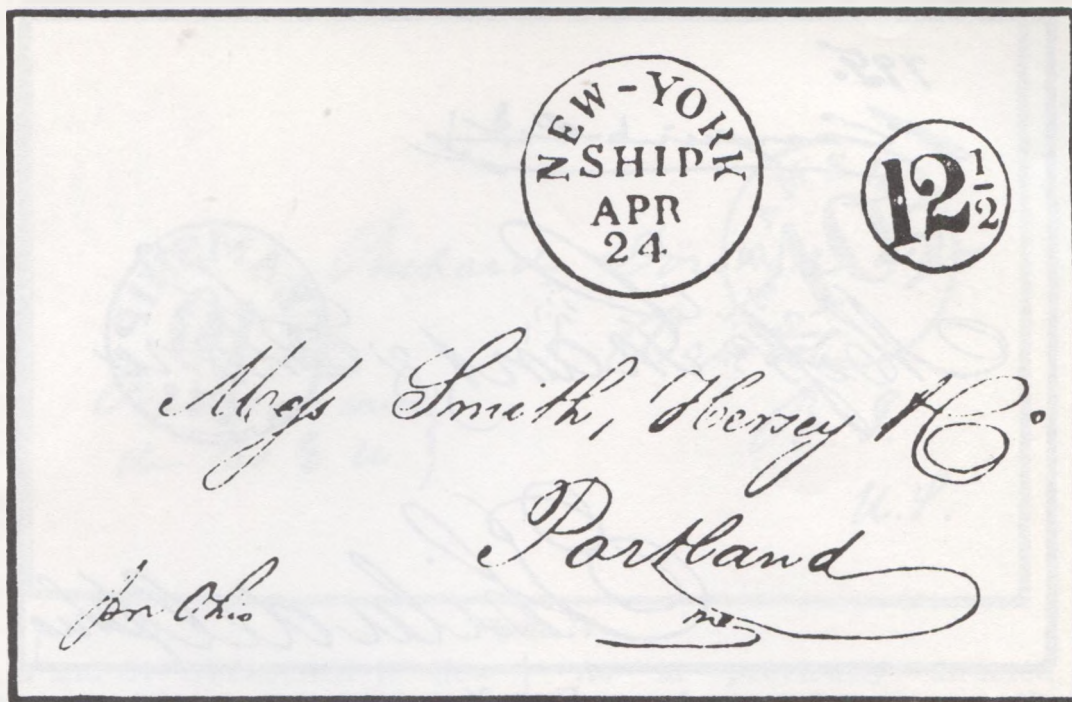 NEW-YORK
SHIP
APR
24
12 1/2
Mess Smith, Hersey & Co
Portland
Me
per Ohio